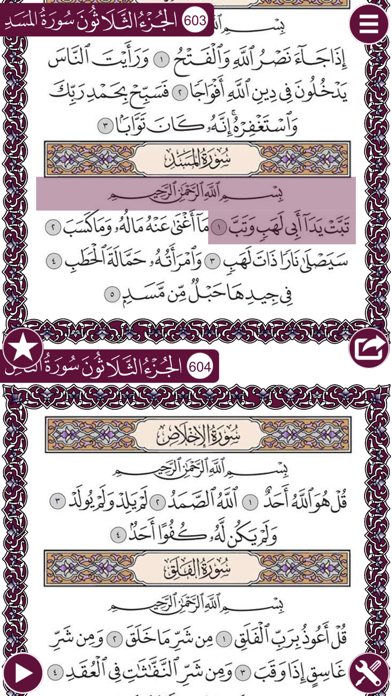 الجُزْءُ الثَّلَاثُونَ سُورَةُ المَسَدِ 603
بِسْمِ ٱللَّهِ ٱلرَّحْمَٰنِ ٱلرَّحِيمِ
إِذَا جَآءَ نَصْرُ ٱللَّهِ وَٱلْفَتْحُ ١ وَرَأَيْتَ ٱلنَّاسَ
يَدْخُلُونَ فِى دِينِ ٱللَّهِ أَفْوَاجًا ٢ فَسَبِّحْ بِحَمْدِ رَبِّكَ
وَٱسْتَغْفِرْهُ ۚ إِنَّهُۥ كَانَ تَوَّابًۢا ٣
سُورَةُ المَسَدِ
بِسْمِ ٱللَّهِ ٱلرَّحْمَٰنِ ٱلرَّحِيمِ
تَبَّتْ يَدَآ أَبِى لَهَبٍ وَتَبَّ ١ مَآ أَغْنَىٰ عَنْهُ مَالُهُۥ وَمَا كَسَبَ ٢
سَيَصْلَىٰ نَارًا ذَاتَ لَهَبٍ ٣ وَٱمْرَأَتُهُۥ حَمَّالَةَ ٱلْحَطَبِ ٤
فِى جِيدِهَا حَبْلٌ مِّن مَّسَدٍۭ ٥
الجُزْءُ الثَّلَاثُونَ سُورَةُ 604
سُورَةُ الإِخْلَاصِ
بِسْمِ ٱللَّهِ ٱلرَّحْمَٰنِ ٱلرَّحِيمِ
قُلْ هُوَ ٱللَّهُ أَحَدٌ ١ ٱللَّهُ ٱلصَّمَدُ ٢ لَمْ يَلِدْ وَلَمْ يُولَدْ ٣
وَلَمْ يَكُن لَّهُۥ كُفُوًا أَحَدٌۢ ٤
سُورَةُ الفَلَقِ
بِسْمِ ٱللَّهِ ٱلرَّحْمَٰنِ ٱلرَّحِيمِ
قُلْ أَعُوذُ بِرَبِّ ٱلْفَلَقِ ١ مِن شَرِّ مَا خَلَقَ ٢ وَمِن شَرِّ
غَاسِقٍ إِذَا وَقَبَ ٣ وَمِن شَرِّ ٱلنَّفَّٰثَٰتِ فِى ٱلْعُقَدِ ٤